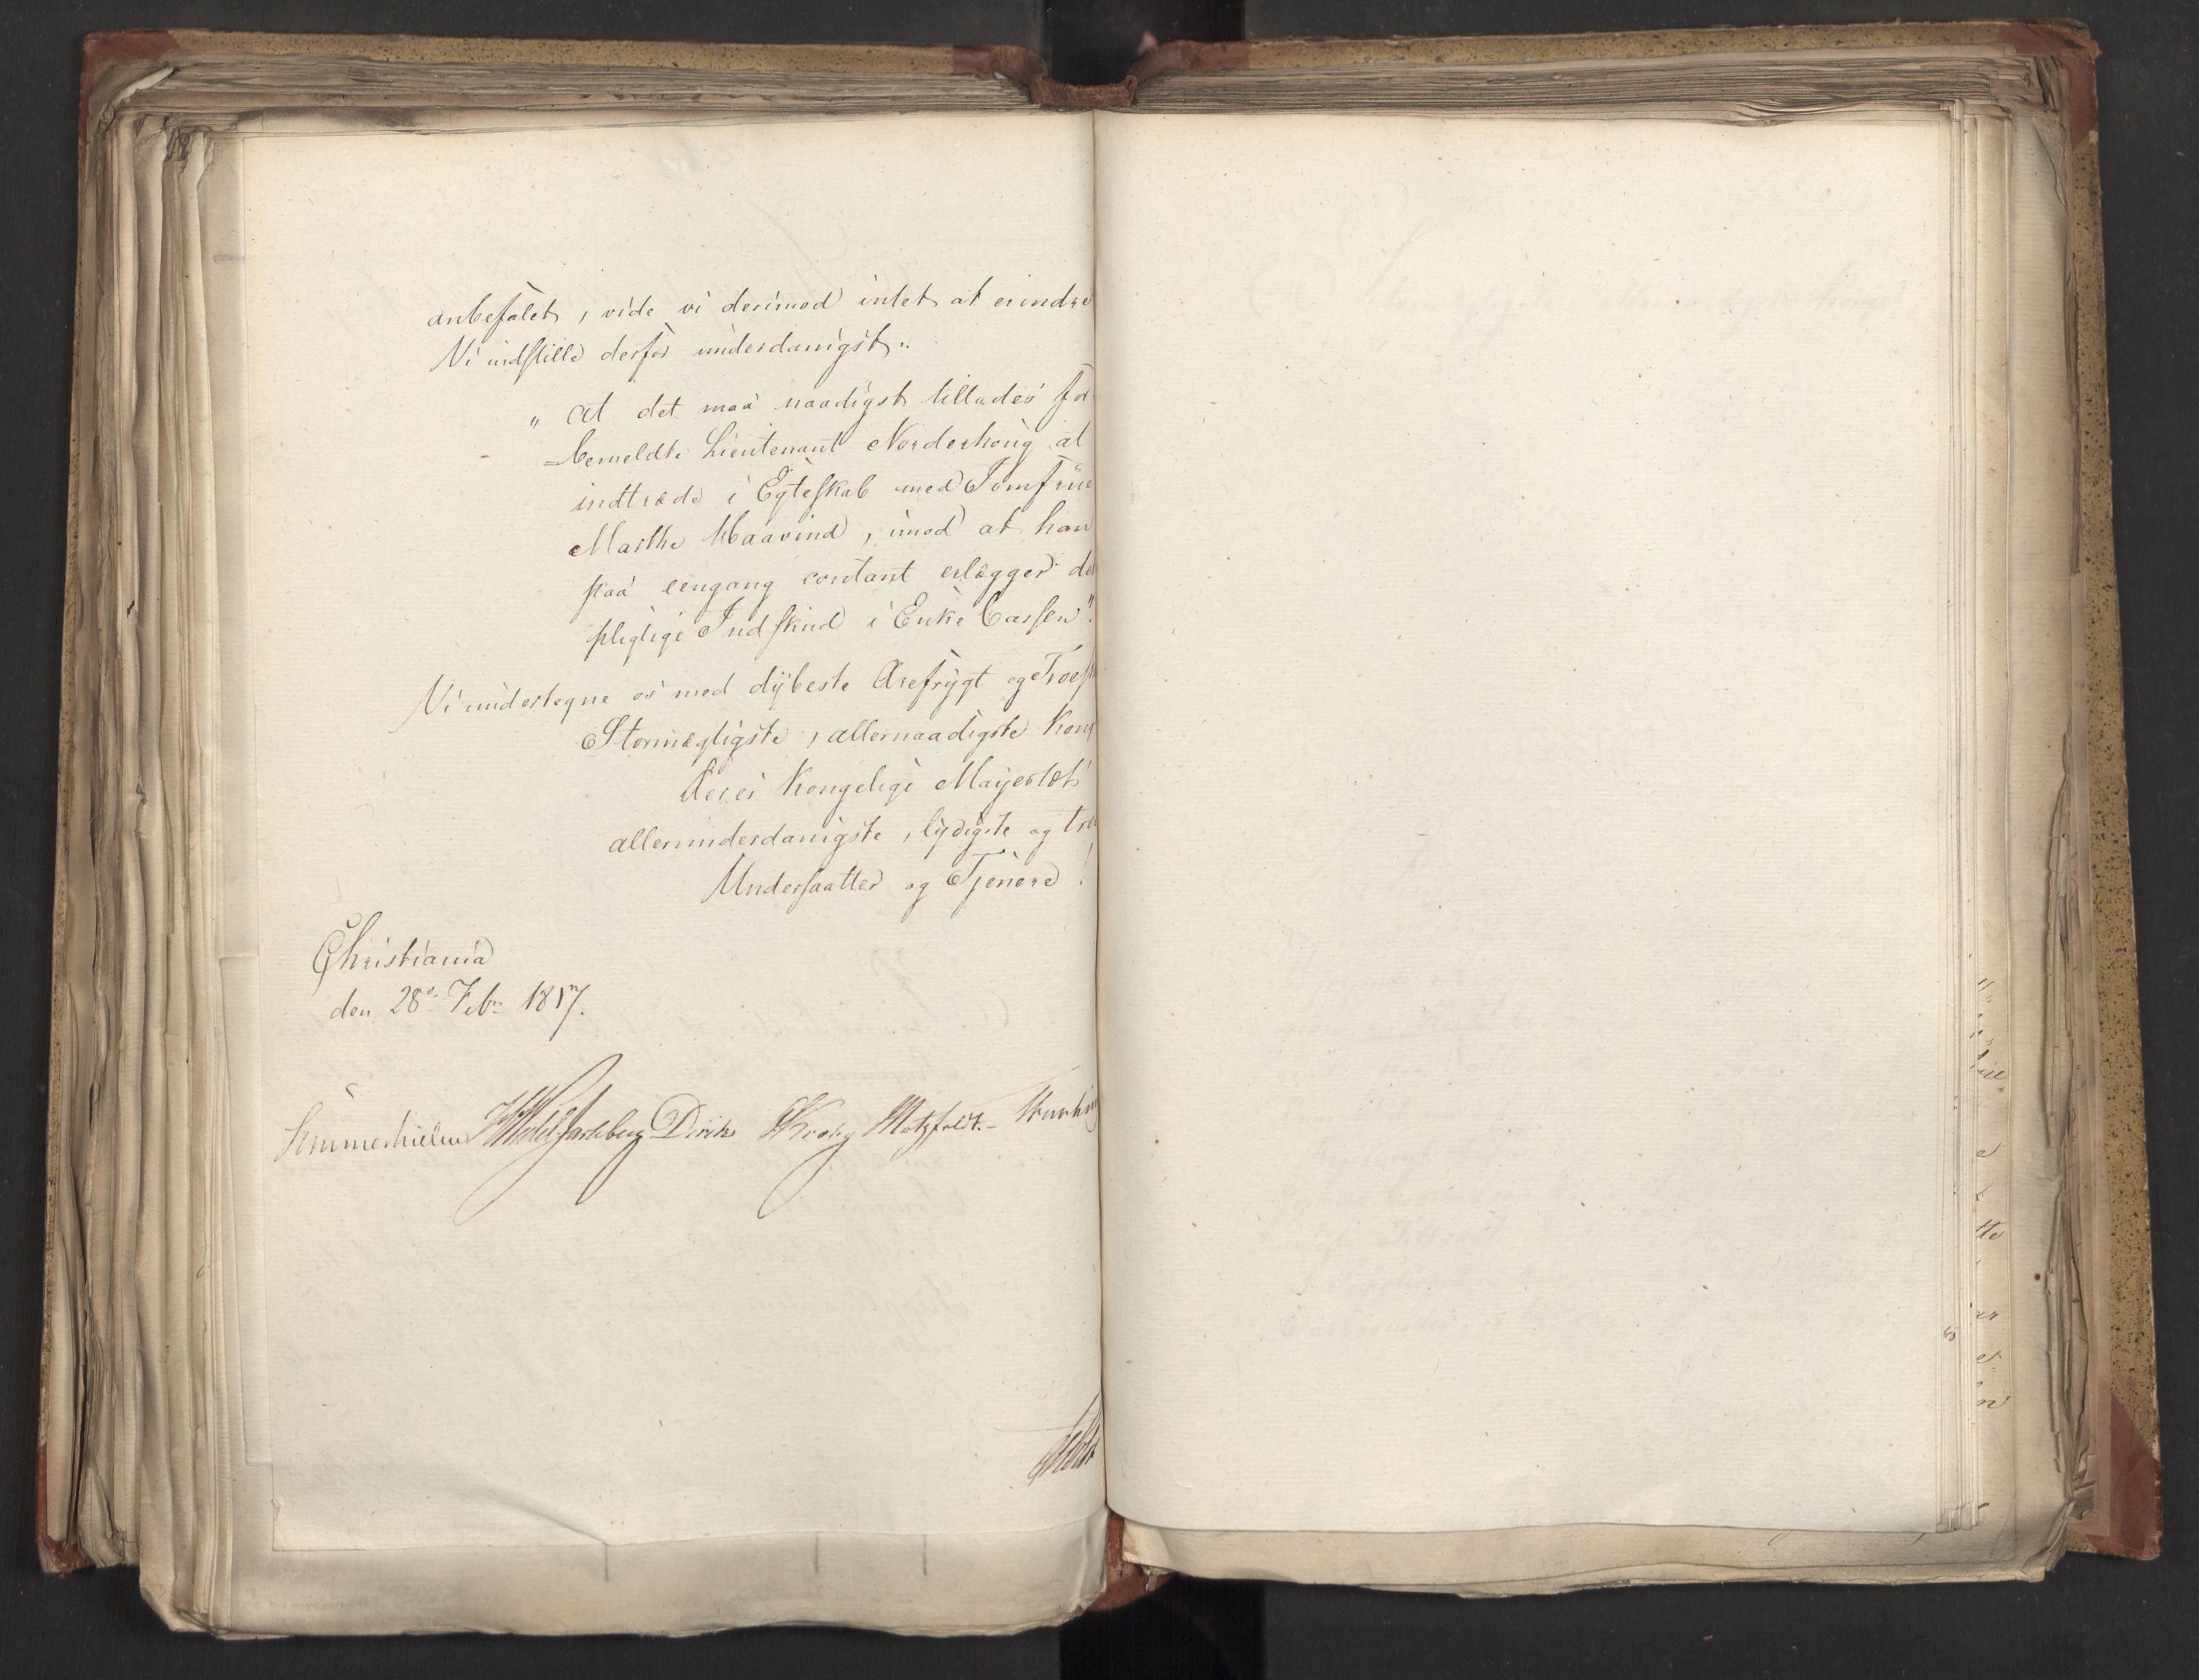 anbefalet, vide vi derimod intet at erindre
Vi indstille derfor underdanigst:
" at det maa naadigst tillades for
=bemeldte Lieutenant Norderhoug at
indtræde i Egteskab med Jomfrue
Marthe Maavind, imod at han
paa eengang contant erlægger det
pligtige Indskud i Enke Cassen".
Vi undertegne os med dybeste Ærefrygt og Troesk
Stormægtigste, allernaadigste Kong
Deres Kongelige Mayestæts
allerunderdanigste, lydigste og tro
Undersaatter og Tjenere!
Christiania
den 28de Febr 1817.
Sommerhielm HWedel Jarlsberg Diriks Krohg Motzfeldt.
Holst